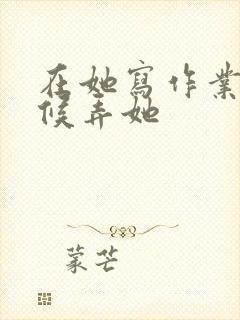 在她寫作業
候弄她
蒙芒